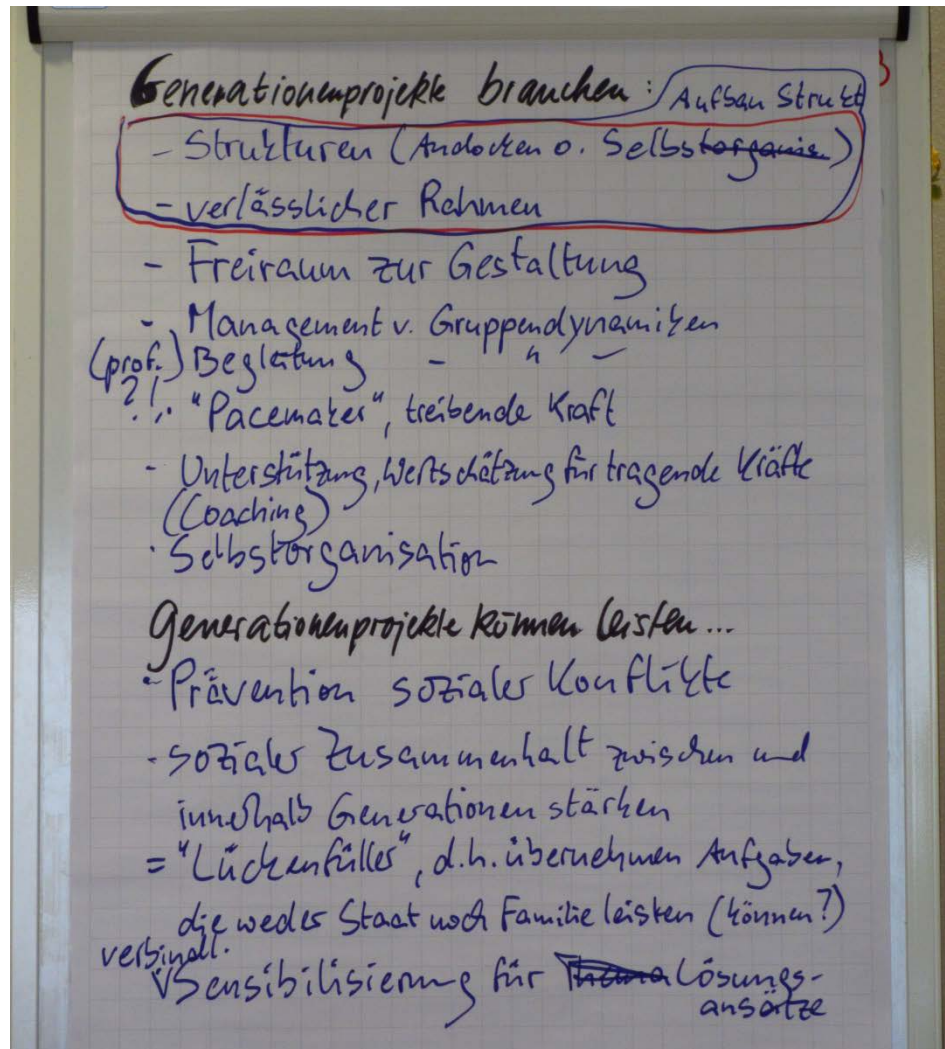 Generationenprojekte brauchen: Aufbau Strukt
- Strukturen (Andocken o. Selbstorganis.)
- verlässlicher Rahmen
- Freiraum zur Gestaltung
- Management v. Gruppendynamiken
(prof.) Begleitung - " -
?!
"Pacemaker", treibende Kraft
- Unterstützung, Wertschätzung für tragende Kräfte
(Coaching)
· Selbstorganisation
Generationenprojekte können leisten...
- Prävention sozialer Konflikte
- sozialer Zusammenhalt zwischen und
innerhalb Generationen stärken
= "Lückenfüller", d.h. übernehmen Aufgaben,
die weder Staat noch Familie leisten (können?)
verbindl.
Sensibilisierung für Thema Lösungs-
ansätze